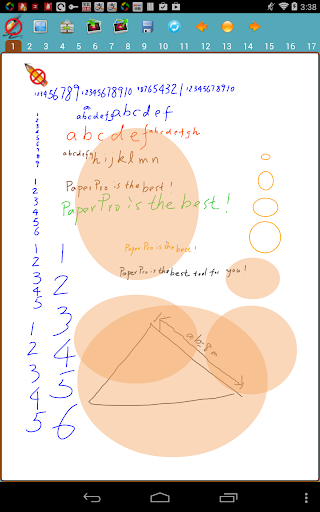 3:38
1 2 3 4 5 6 7 8 9 10 11 12 13 14 15 16 17
123456789 12345678910 12345678910
abcdefg abcdef
abcdef abcdefgh
abcdefg hijklmn
PaperPro is the best!
PaperPro is the best!
PaperPro is the best!
PaperPro is the best tool for you!
ab=8m
1
2
3
4
5
6
7
8
9
1
2
3
4
5
6
1
2
3
4
5
1
2
3
4
5
1
2
3
4
5
6